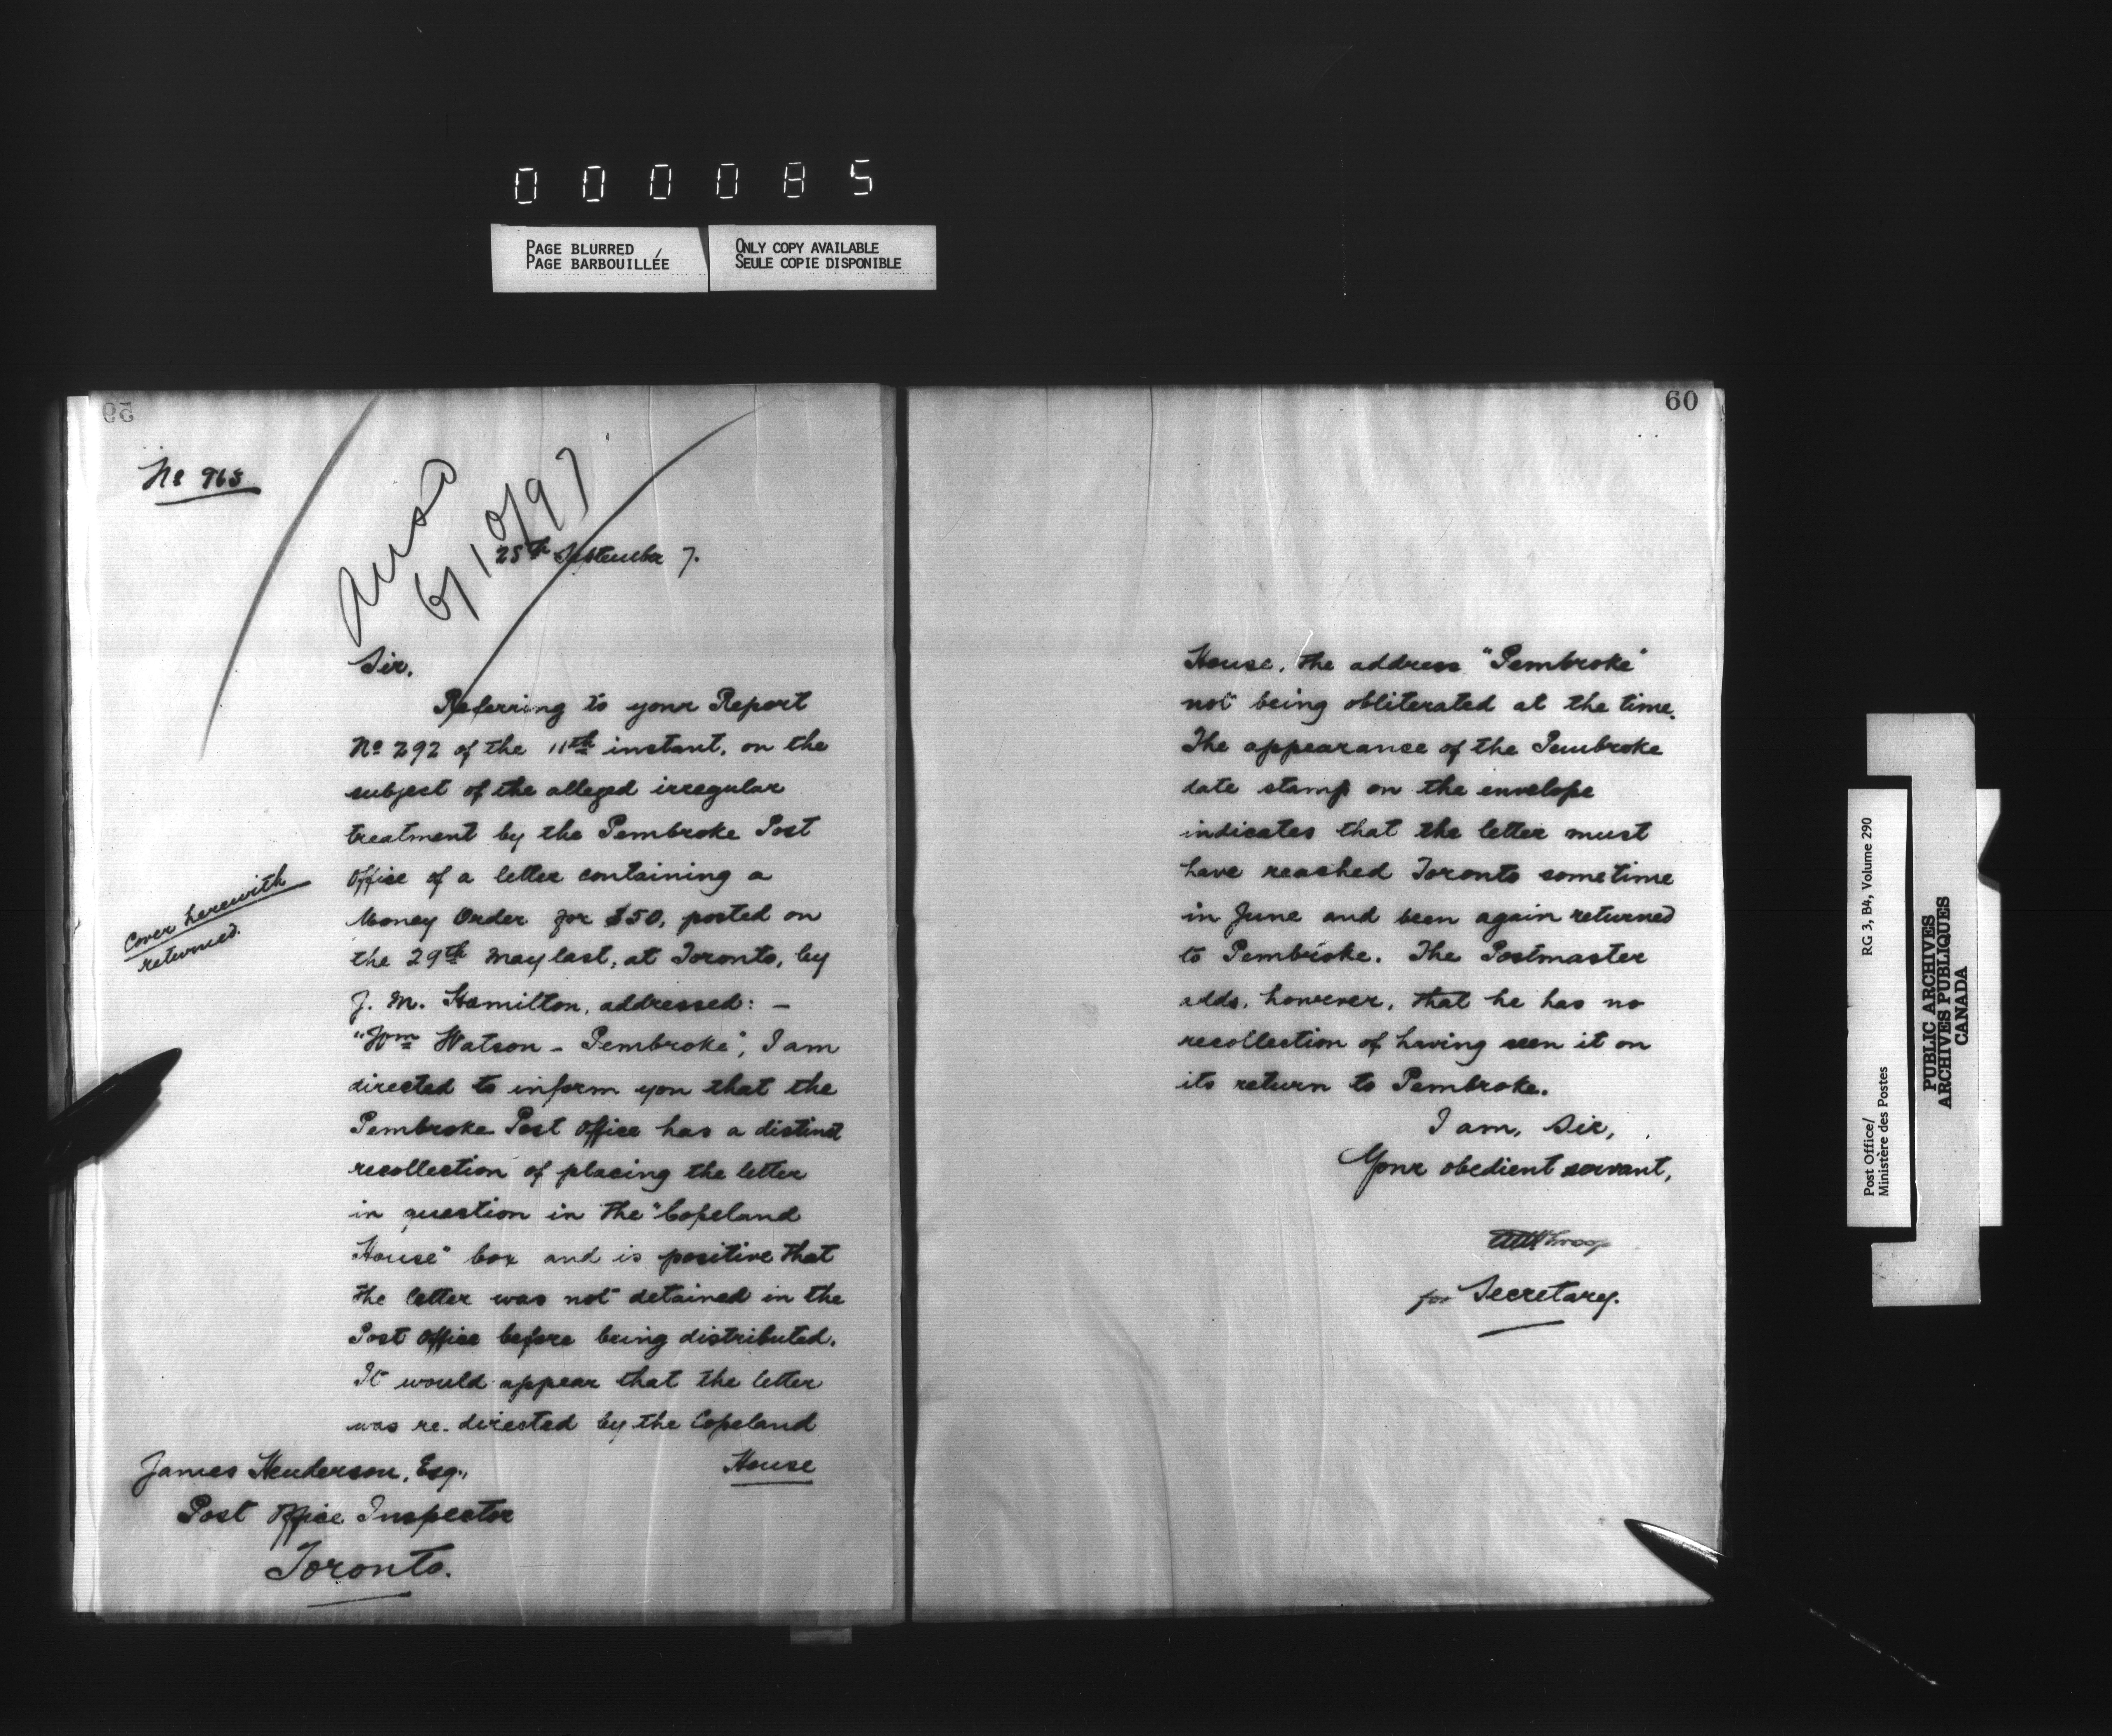 000085
PAGE BLURRED
PAGE BARBOUILLÉE
ONLY COPY AVAILABLE
SEULE COPIE DISPONIBLE
No 963
6/10/97
25th September 7.
Sir,
Referring to your Report
No 292 of the 11th instant, on the
subject of the alleged irregular
treatment by the Pembroke Post
Office of a letter containing a
Money Order for $50, posted on
the 29th May last, at Toronto, by
J. M. Hamilton, addressed: –
"Wm Watson – Pembroke", I am
directed to inform you that the
Pembroke Post Office has a distinct
recollection of placing the letter
in question in the "Copeland
House" box and is positive that
the letter was not detained in the
Post Office before being distributed.
It would appear that the letter
was re-directed by the Copeland
House
Cover herewith
returned.
James Henderson, Esq.,
Post Office Inspector
Toronto.
60
House, the address "Pembroke"
not being obliterated at the time.
The appearance of the Pembroke
date stamp on the envelope
indicates that the letter must
have reached Toronto sometime
in June and been again returned
to Pembroke. The Postmaster
adds, however, that he has no
recollection of having seen it on
its return to Pembroke.
I am, Sir,
Your obedient servant,
for Secretary.
Post Office/
Ministère des Postes
RG 3, B4, Volume 290
PUBLIC ARCHIVES
ARCHIVES PUBLIQUES
CANADA